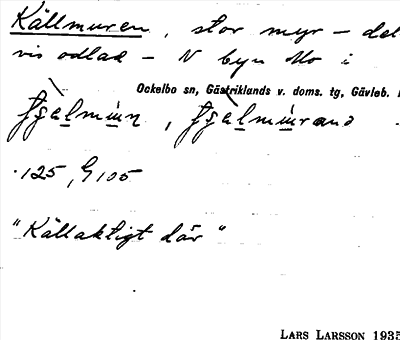 Källmuren, stor myr – del
vis odlad – N byn Mo i
Ockelbo sn, Gästriklands v. doms. tg, Gävleb.
125, G 105
"Källaktigt där"
LARS LARSSON 1935